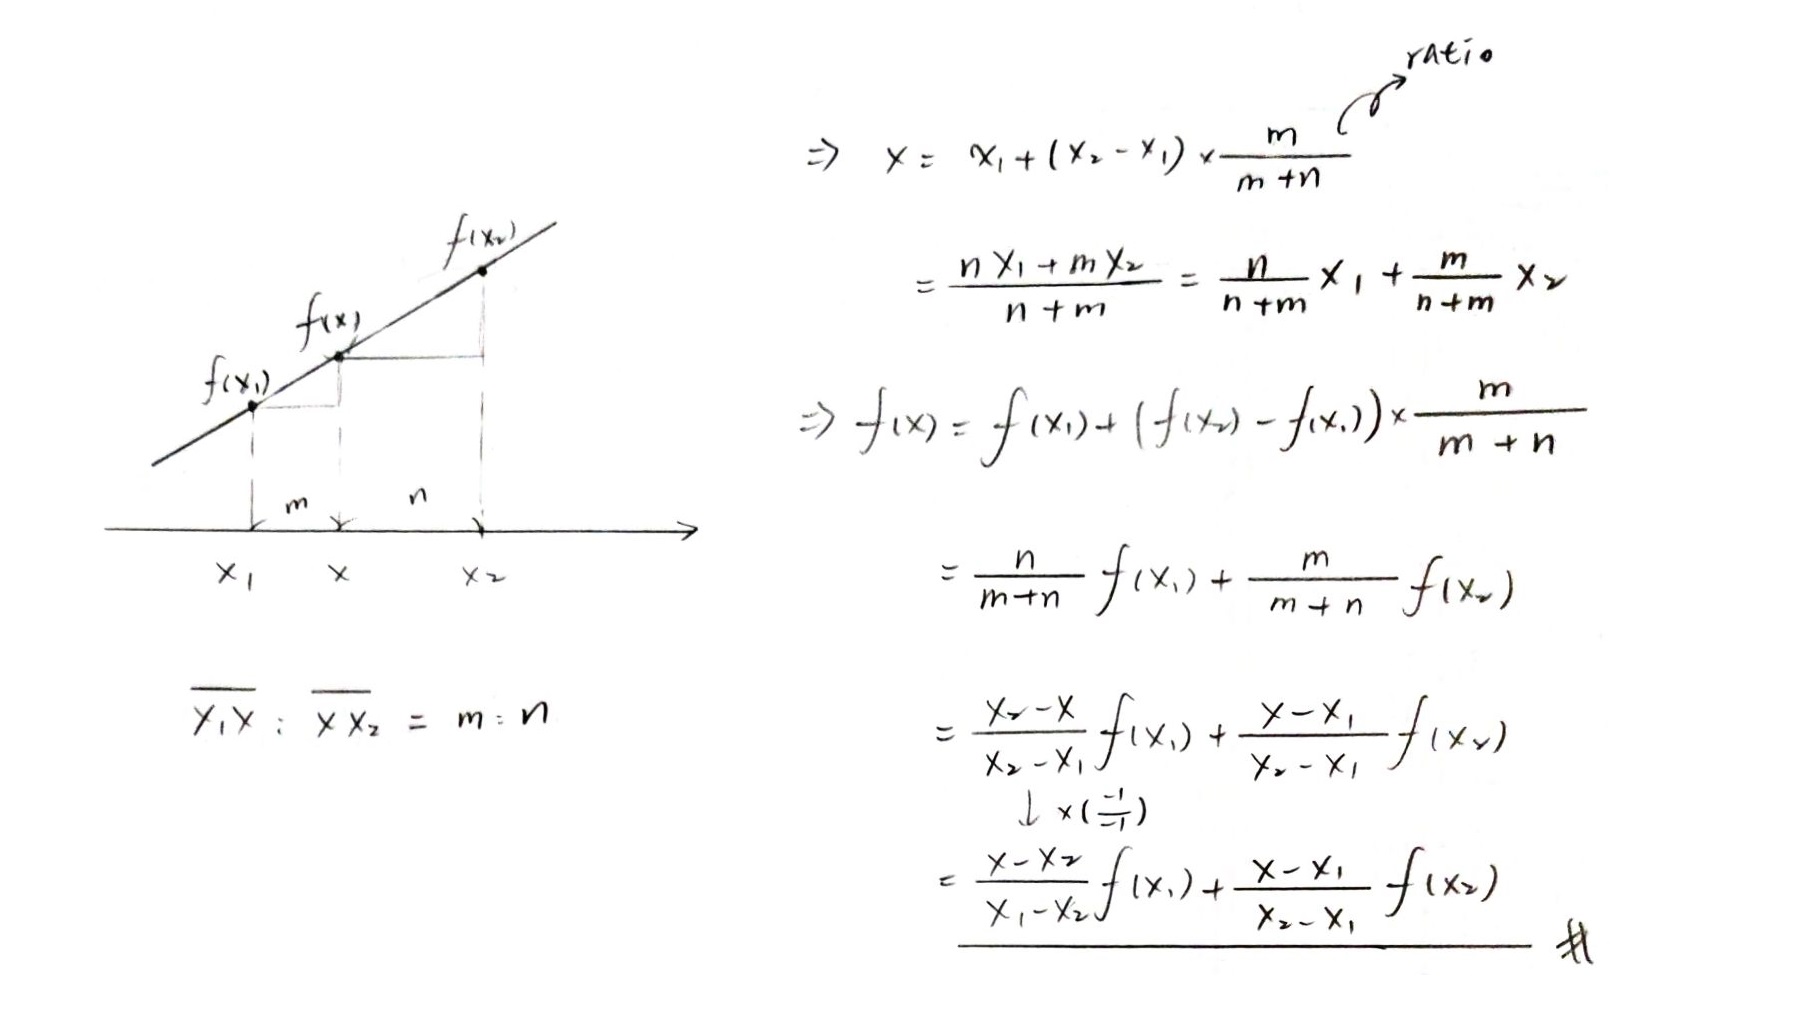 f(x₂)
f(x)
f(x₁)
m n
x₁ x x₂
x̅₁x̅ : x̅x̅₂ = m : n
ratio
⇒ x = x₁ + (x₂ - x₁) × m/(m+n)
= (n x₁ + m x₂)/(n+m) = n/(n+m) x₁ + m/(n+m) x₂
⇒ f(x) = f(x₁) + (f(x₂) - f(x₁)) × m/(m+n)
= n/(m+n) f(x₁) + m/(m+n) f(x₂)
= (x₂-x)/(x₂-x₁) f(x₁) + (x-x₁)/(x₂-x₁) f(x₂)
↓ × (-1/-1)
= (x-x₂)/(x₁-x₂) f(x₁) + (x-x₁)/(x₂-x₁) f(x₂) #